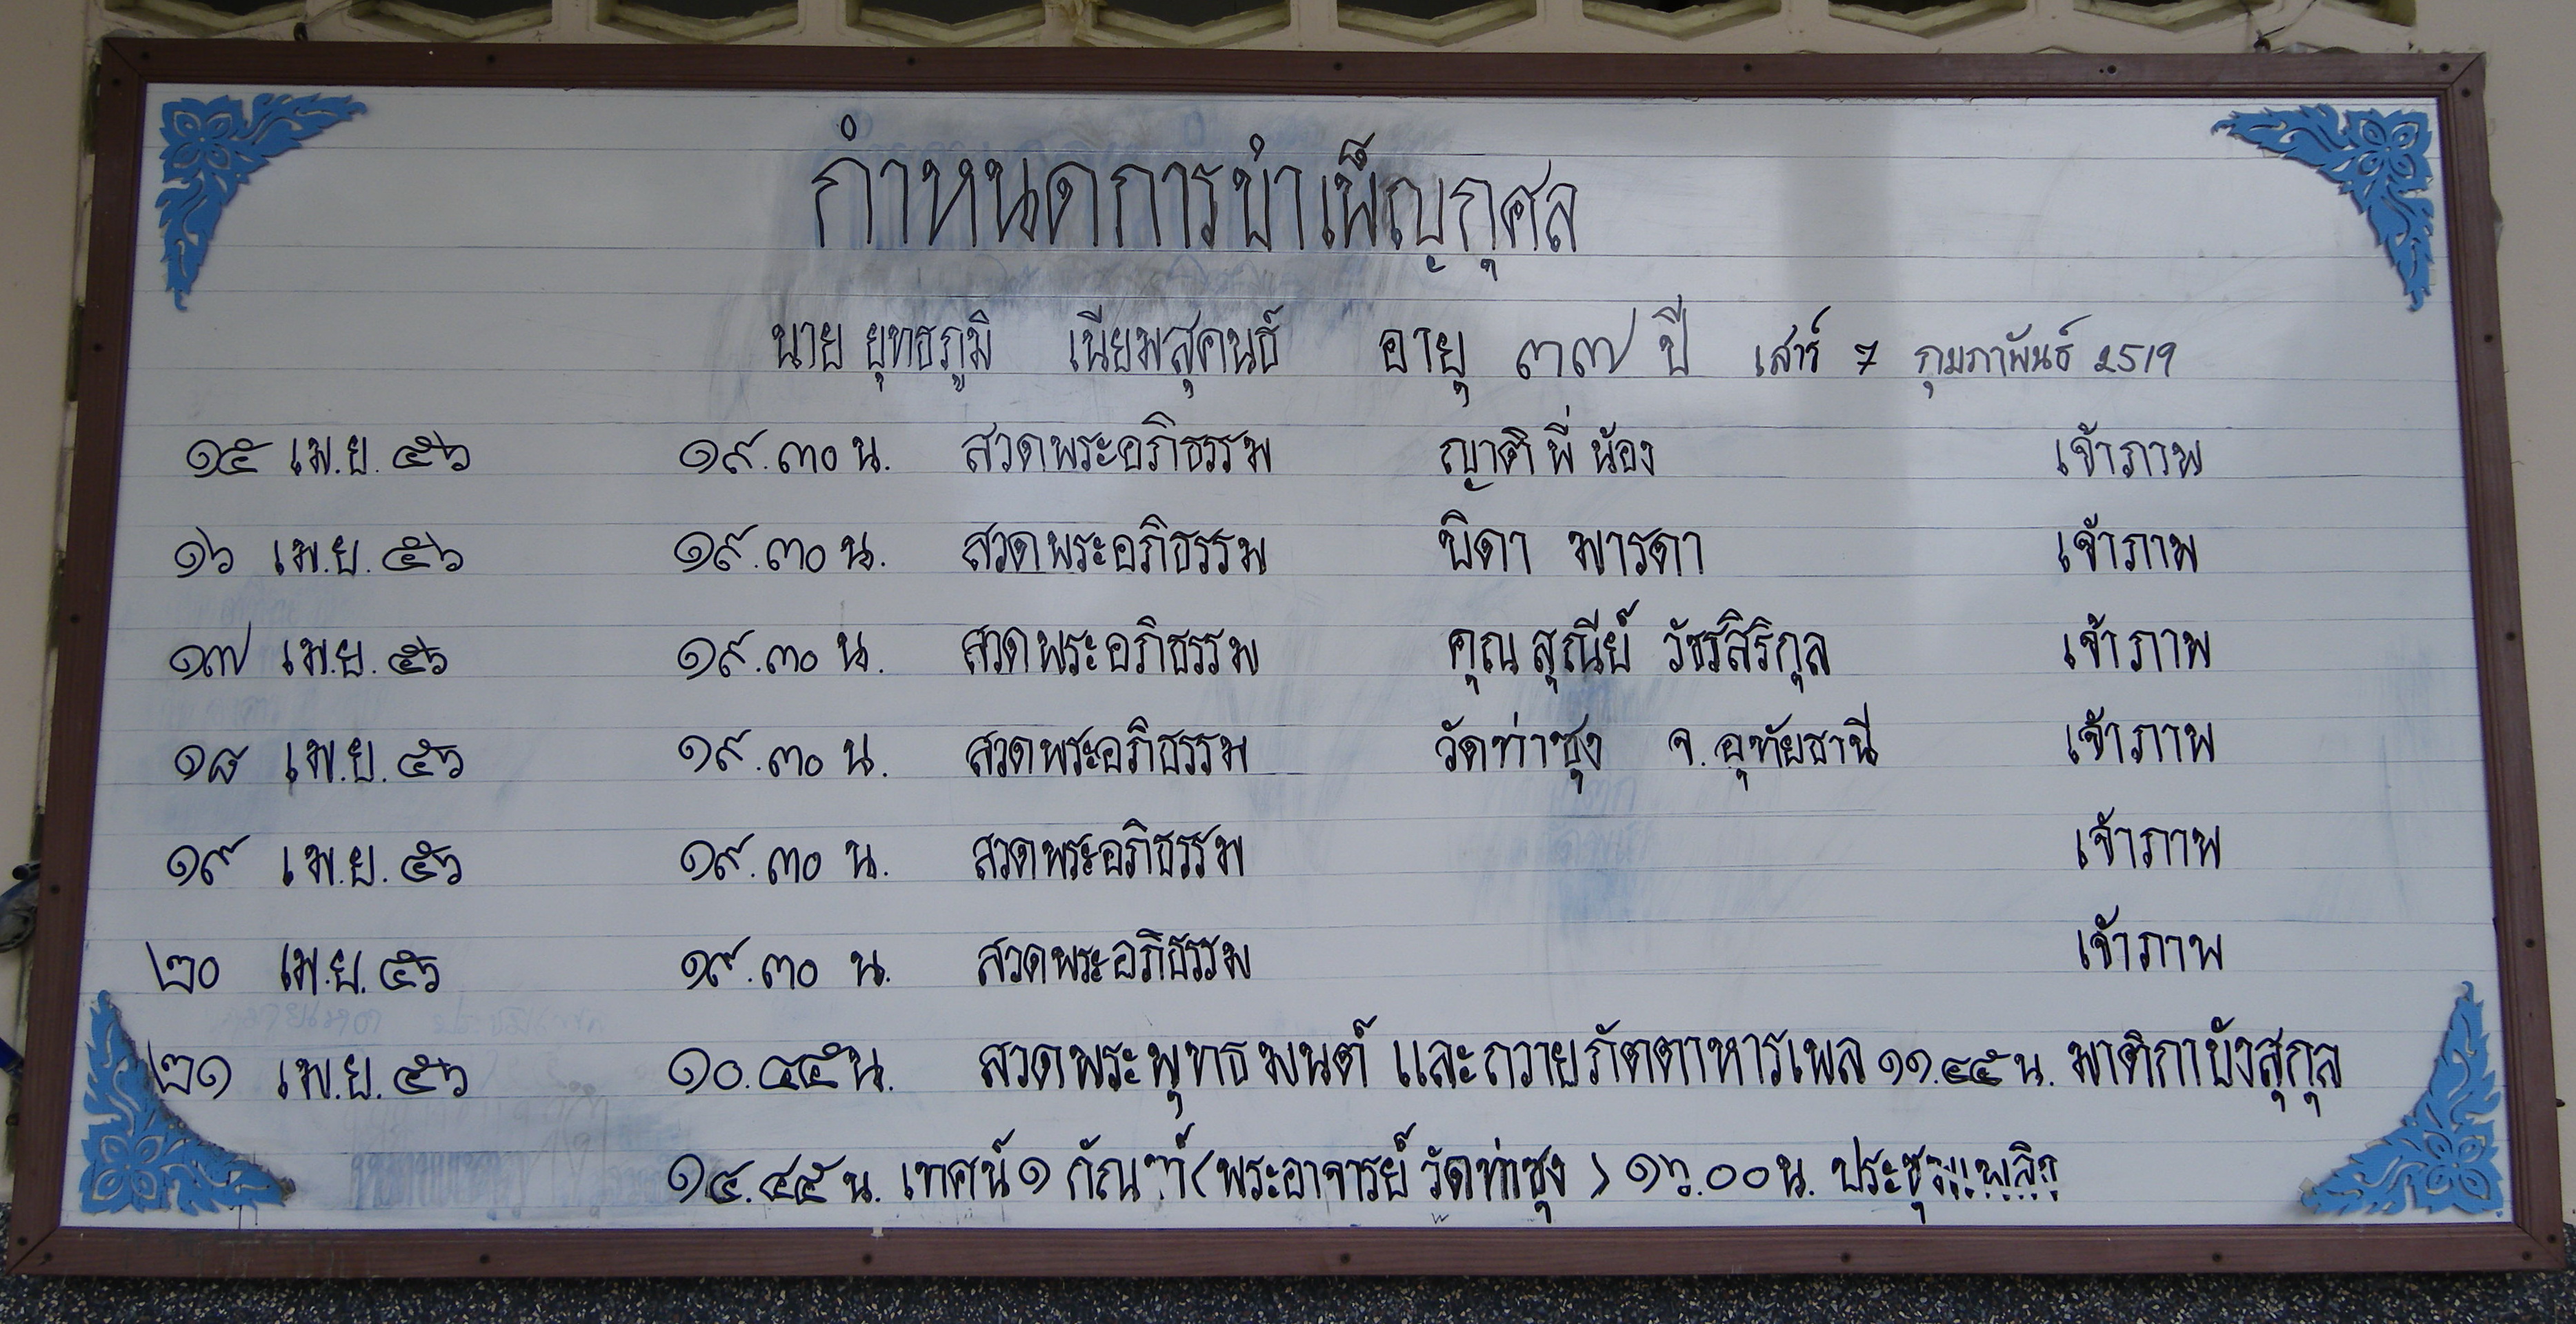 กำหนดการบำเพ็ญกุศล
นาย ยุทธภูมิ เนียมสุคนธ์ อายุ ๓๗ ปี เสาร์ 7 กุมภาพันธ์ 2519
๑๕ เม.ย. ๕๖ ๑๙.๓๐ น. สวดพระอภิธรรม ญาติ พี่ น้อง เจ้าภาพ
๑๖ เม.ย. ๕๖ ๑๙.๓๐ น. สวดพระอภิธรรม บิดา มารดา เจ้าภาพ
๑๗ เม.ย. ๕๖ ๑๙.๓๐ น. สวดพระอภิธรรม คุณ สุณีย์ วัชรสิริกุล เจ้าภาพ
๑๘ เม.ย. ๕๖ ๑๙.๓๐ น. สวดพระอภิธรรม วัดท่าซุง จ.อุทัยธานี เจ้าภาพ
๑๙ เม.ย. ๕๖ ๑๙.๓๐ น. สวดพระอภิธรรม เจ้าภาพ
๒๐ เม.ย. ๕๖ ๑๙.๓๐ น. สวดพระอภิธรรม เจ้าภาพ
๒๑ เม.ย. ๕๖ ๑๐.๔๕ น. สวดพระพุทธมนต์ และถวายภัตตาหารเพล ๑๑.๔๕ น. มาติกาบังสุกุล
๑๔.๔๕ น. เทศน์ ๑ กัณฑ์ (พระอาจารย์ วัดท่าซุง ) ๑๖.๐๐ น. ประชุมเพลิง